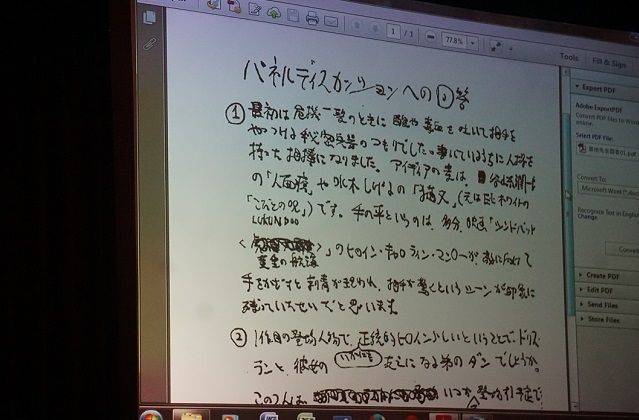 1 / 1
77.8%
Tools
Fill & Sign
パネルディスカッションへの回答
① 最初は危機一髪のときに酸や毒血を吐いて相手を
やっつける秘密兵器のつもりでした。書いているうちに人格を
持ち相棒になりました。アイディアの素は、谷崎潤一郎
の「人面疽」や水木しげるの「猫又」(元はEヒホワイトの
「こびとの呪」)です。手の平というのは、多分、映画「シンドバット
LUKUNDOO
黄金の航海
」のヒロイン・キャロライン・マンローが、敵に向けて
手をかざすと刺青が現われ、相手が驚くというシーンが印象に
残っていたせいだと思います。
② 1作目の登場人物で、正統的ヒロインらしいということで、ドリス・
ランと、彼女の いかにも 支えになる弟のダンでしょうか。
この2人は いつか登場させる予定で
Export PDF
Adobe ExportPDF
Convert PDF files to Word
online.
Select PDF File:
Convert To:
Microsoft Word (*.
Recognize Text in English
Change
Conver
Create PDF
Edit PDF
Send Files
Store Files